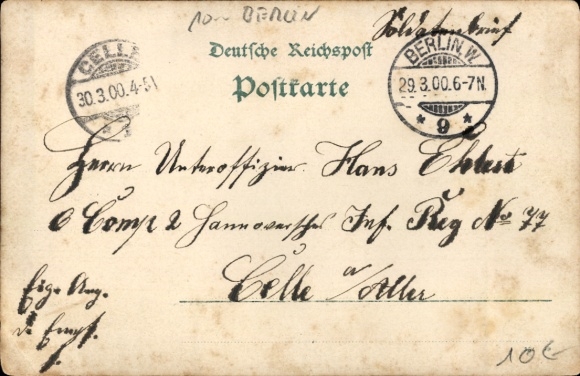 10.- BERLIN
Soldatenbrief
Deutsche Reichspost
Postkarte
CELLE
30.3.00.4-5N
* 1 *
BERLIN.W.
29.3.00.6-7N.
* 9 *
Herrn Unteroffizier Hans Ehlert
6 Comp 2 Hannoversches Inf. Reg No 77
Celle a/Aller
Eige. Ang.
d. Empf.
10€